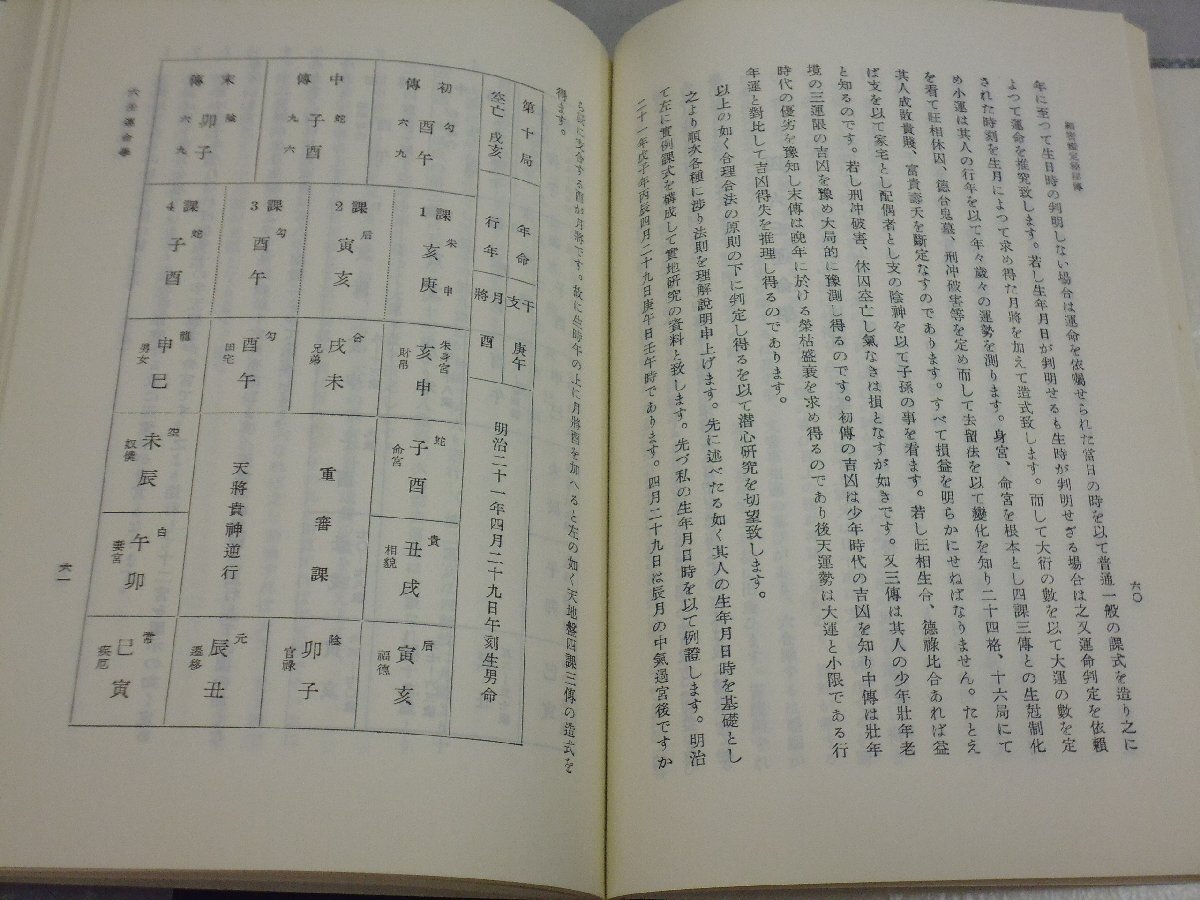 六〇
年に至つて生日時の判明しない場合は運命を依囑せられた當日の時を以て普通一般の課式を造り之に
よつて運命を推究致します。若し生年月日が判明せるも生時が判明せざる場合は之又運命判定を依賴
された時刻を生月によつて求め得た月將を加えて造式致します。而して大衍の數を以て大運の數を定
め小運は其人の行年を以て年々歲々の運勢を測ります。身宮、命宮を根本とし四課三傳との生尅制化
を看て旺相休囚、德合鬼墓、刑冲破害等を定め而して去留法を以て變化を知り二十四格、十六局にて
其人成敗貴賤、富貴壽夭を斷定なすのであります。すべて損益を明らかにせねばなりません。たとえ
ば支を以て家宅とし配偶者とし支の陰神を以て子孫の事を看ます。若し旺相生合、德祿比合あれば益
と知るのです。若し刑冲破害、休囚空亡し氣なきは損となすが如きです。又三傳は其人の少年壯年老
境の三運限の吉凶を豫め大局的に豫測し得るのです。初傳の吉凶は少年時代の吉凶を知り中傳は壯年
時代の優劣を豫知し末傳は晚年に於ける榮枯盛衰を求め得るのであり後天運勢は大運と小限である行
年運と對比して吉凶得失を推理し得るのであります。
以上の如く合理合法の原則の下に判定し得るを以て潛心研究を切望致します。
之より順次各種に涉り法則を理解說明申上げます。先に述べたる如く其人の生年月日時を基礎とし
て左に實例課式を構成して實地研究の資料と致します。先づ私の生年月日時を以て例證します。明治
二十一年戊子年丙辰四月二十九日庚午日壬午時であります。四月二十九日は辰月の中氣過宮後ですか
ら辰に支合する酉が月將です。故に生時午の上に月將酉を加へると左の如く天地盤四課三傳の造式を
得ます。
第十局 年命 干支 庚午 明治二十一年四月二十九日午刻生男命
空亡 戌亥 行年 月將 酉
初傳 勾 酉午 六九
中傳 蛇 子酉 九六
末傳 陰 卯子 六九
課1 朱 亥庚 申
課2 后 寅亥
課3 勾 酉午
課4 蛇 子酉
朱身宮 亥申 財帛
蛇 子酉 命宮
貴 丑戌 相貌
后 寅亥 福德
合 戌未 兄弟
重審課
陰 卯子 官祿
勾 酉午 田宅
天將貴神逆行
元 辰丑 遷移
龍 申巳 男女
空 未辰 奴僕
白 午卯 妻宮
常 巳寅 疾厄
六壬運命學
六一